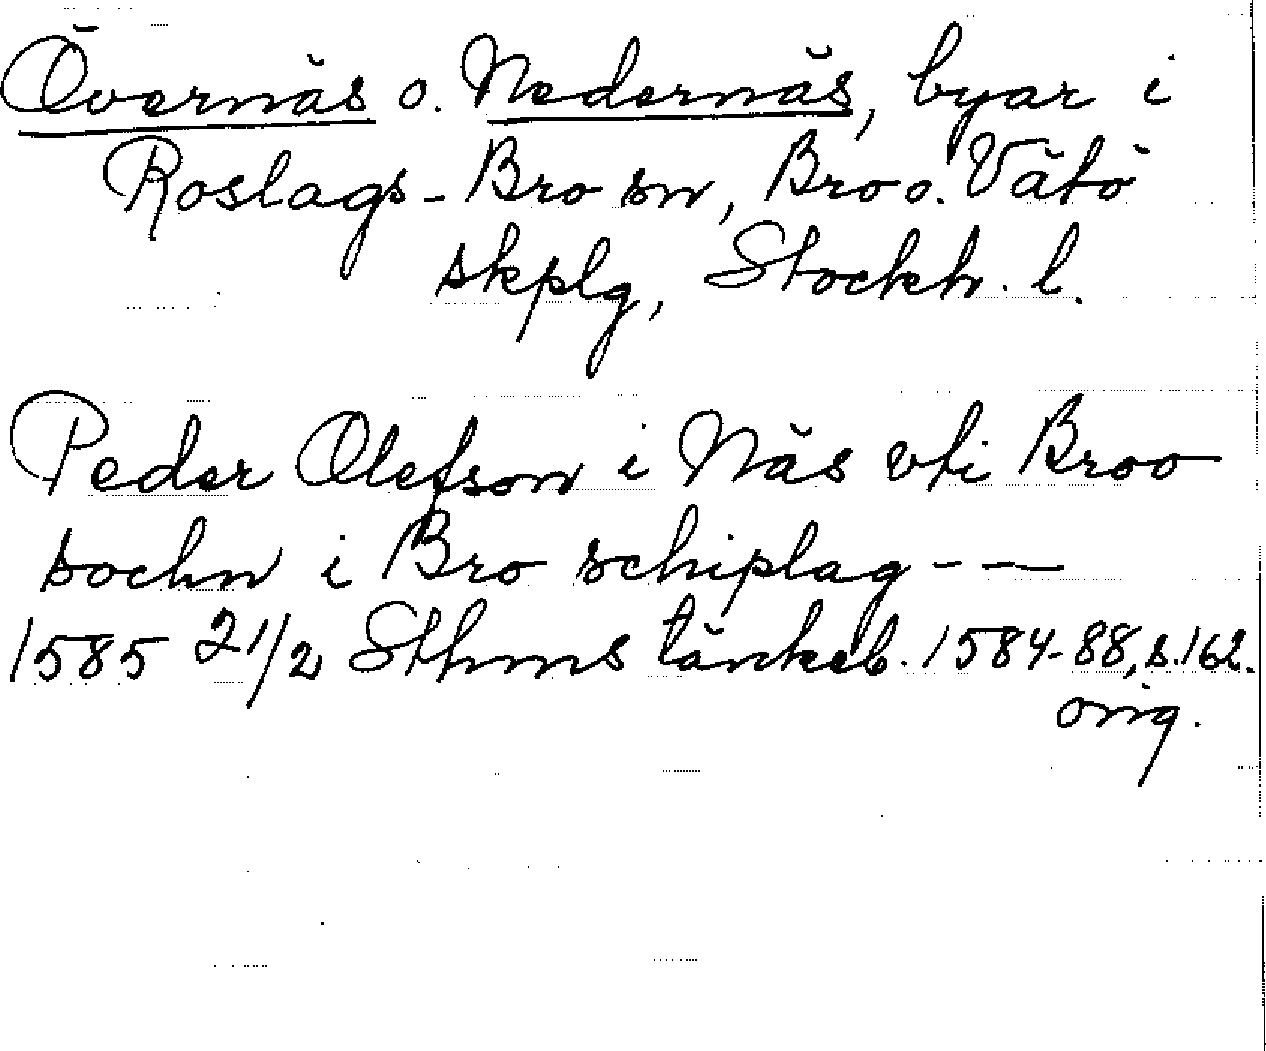 Övernäs o. Nedernäs, byar i
Roslags-Bro sn, Bro o. Vätö
skplg, Stockh. l.
Peder Olefson i Näs vti Broo
sochn i Bro schiplag - - -
1585 21/2 Sthms tänkeb. 1584-88, s. 162.
orig.